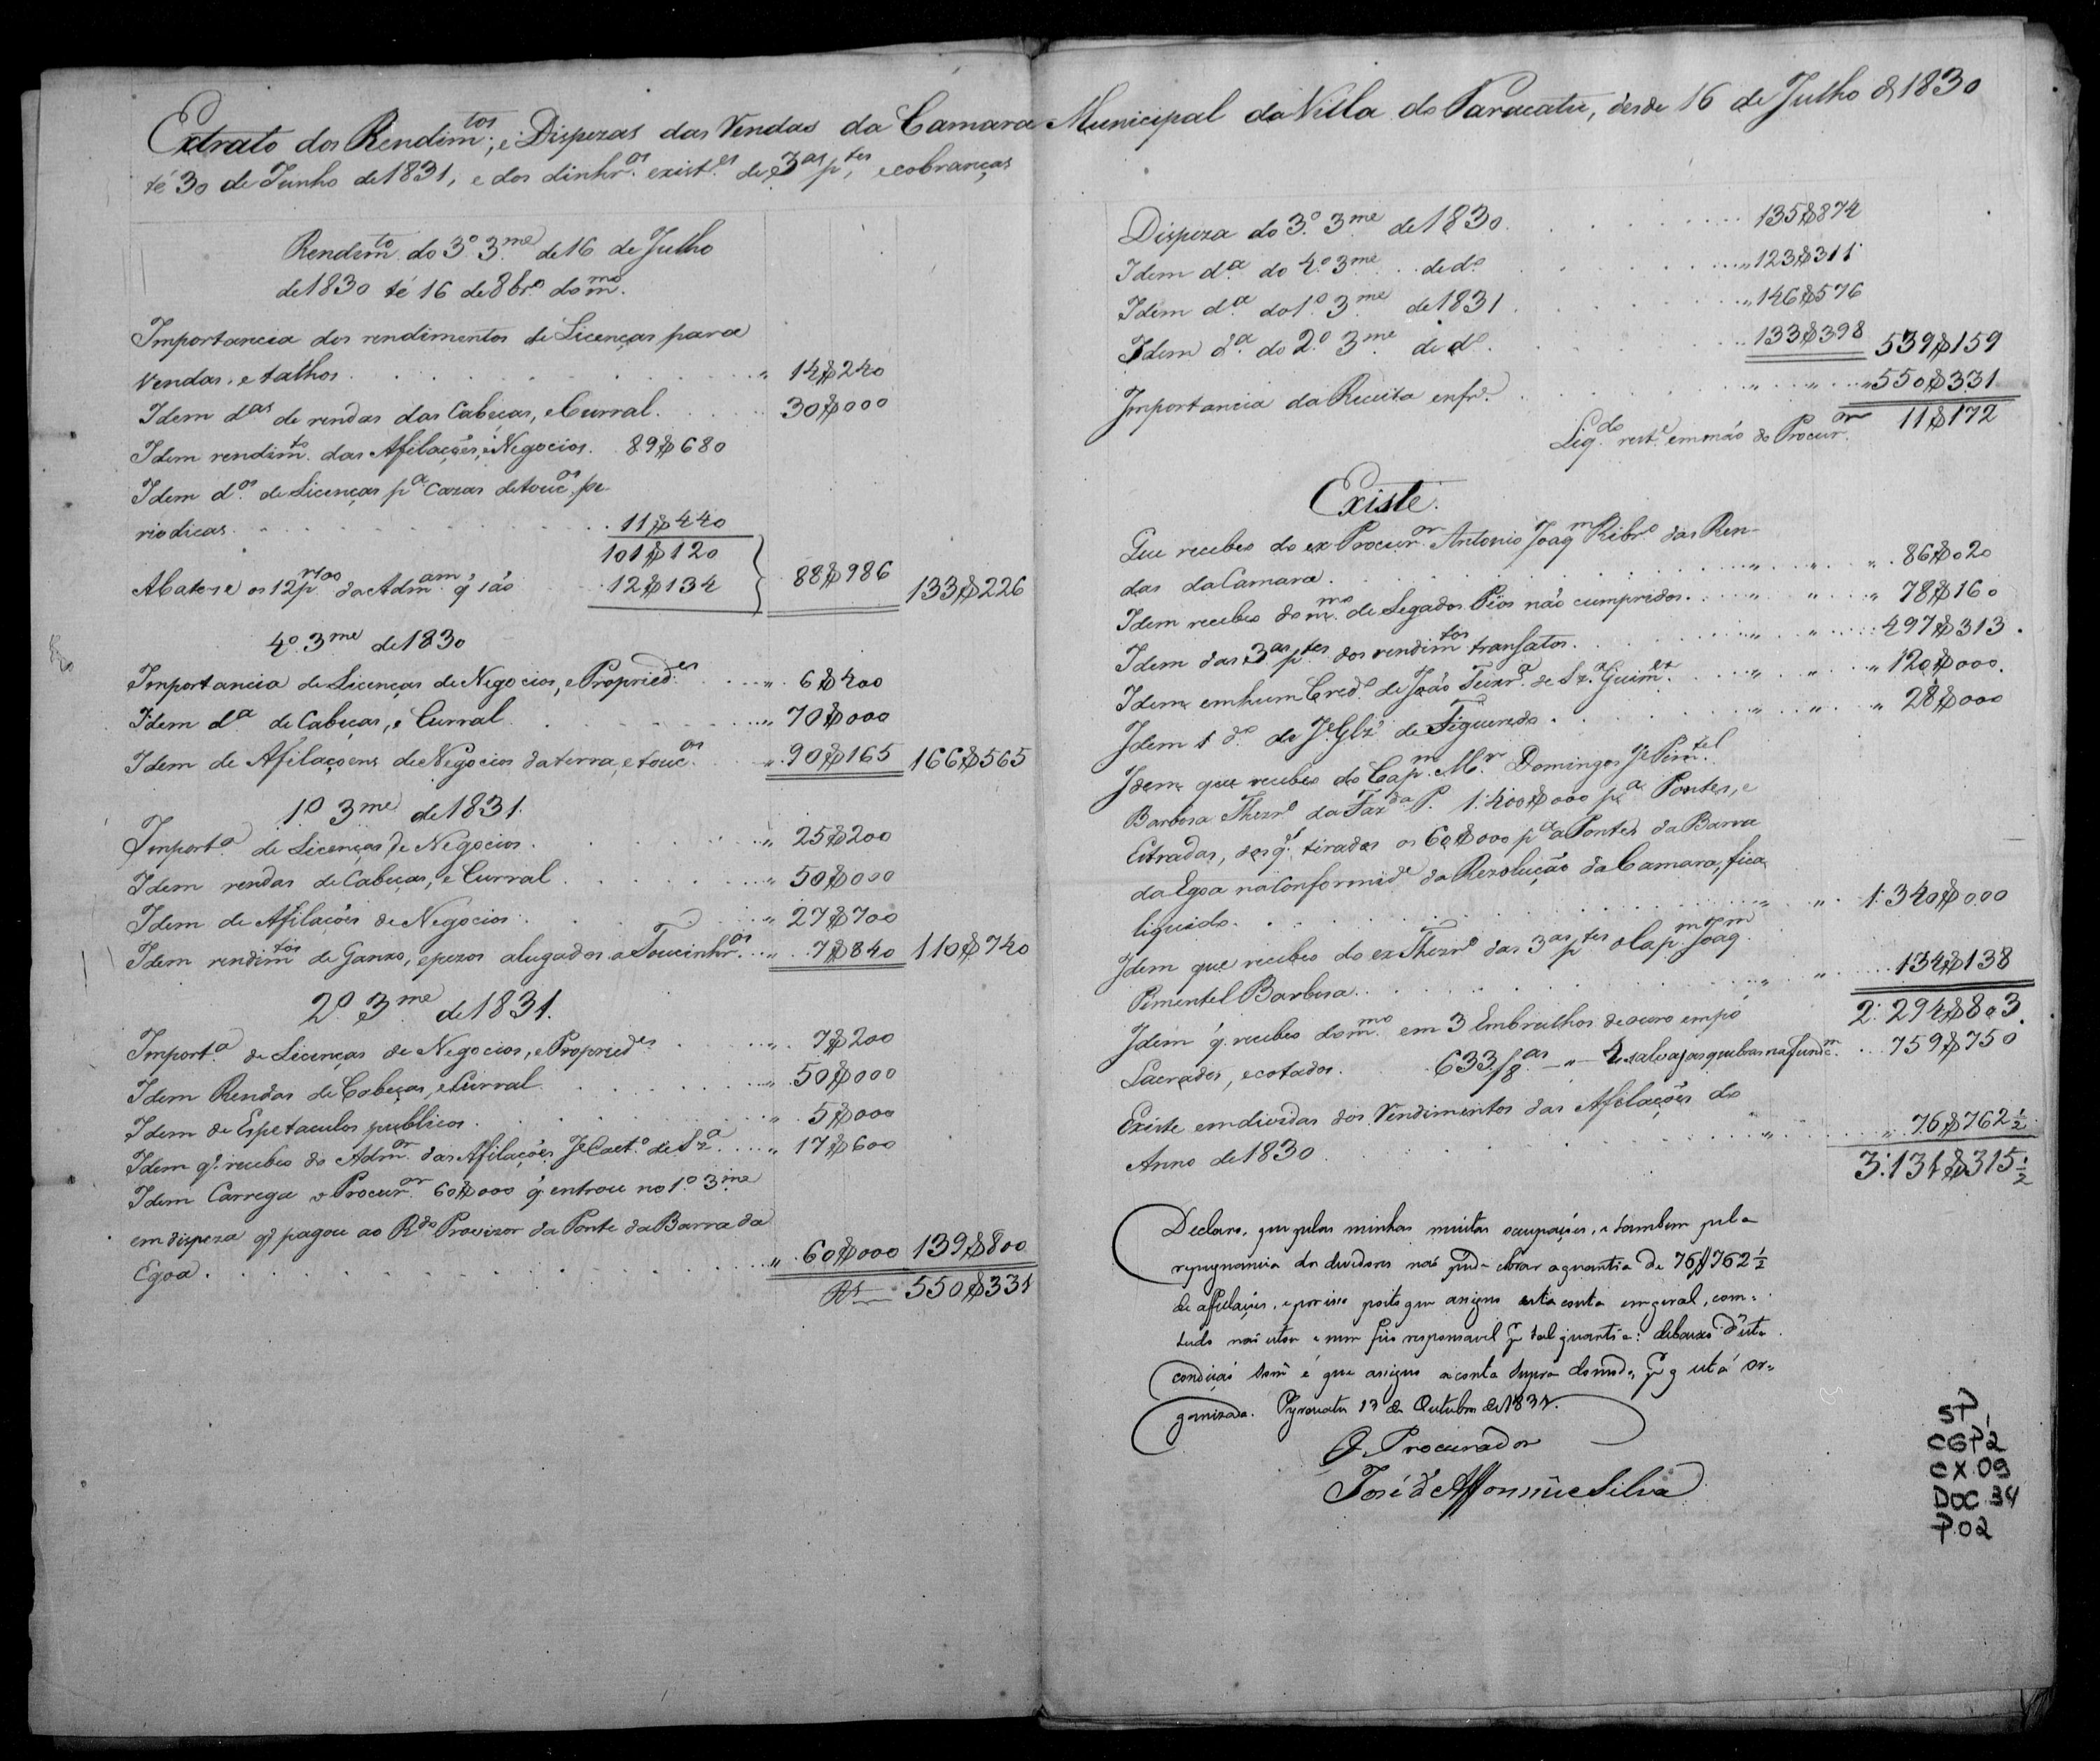 Extrato dos Rendim.tos, e Dispezas das Rendas da Camara Municipal da Villa do Paracatú, desde 16 de Julho de 1830
té 30 de Junho de 1831, e dos dinhr.os exist.es de 3.as p.tes, e cobranças
Rendim.to do 3.º 3.me de 16 de Julho
de 1830 té 16 de 8br.º do m.mo
Importancia dos rendimentos de Licenças para
Vendas, e talhos . . . " 14$240
Idem d.as de rendas das Cabeças, e Curral . . . 30$000
Idem rendim.to das Afilações, e Negocios. 89$680
Idem d.os de Licenças p.a Cazas de touc.os pe
riodicas . . . 11$440
101$120
Abatese os 12 p. r100 da Adm.am q' são 12$134 } 88$986 133$226
4.º 3.me de 1830
Importancia de Licenças de Negocios, e Propried.es . . . " 6$400
Idem d.a de Cabeças, e Curral . . . " 70$000
Idem de Afilaçoens de Negocios da terra, e touc.os . . . " 90$165 166$565
1.º 3.me de 1831.
Import.a de Licenças de Negocios . . . " 25$200
Idem rendas de Cabeças, e Curral . . . " 50$000
Idem de Afilações de Negocios . . . " 27$700
Idem rendim.tos de Ganxo, e pezos alugados a Toucinhr.os . . . " 7$840 110$740
2.º 3.me de 1831.
Import.a de Licenças de Negocios, e Propried.es . . . " 7$200
Idem Rendas de Cabeças, e Curral . . . " 50$000
Idem de Espetaculos publicos . . . " 5$000
Idem q' recebeo do Adm.or das Afilações J.e Caet.º de Sz.a . . . " 17$600
Idem Carrega o Procur.or 60$000 q' entrou no 1.º 3.me
em dispeza q' pagou ao R.do Provizor da Ponte da Barra da
Egoa . . . " 60$000 139$800
Rs 550$331
Dispeza do 3.º 3.me de 1830 . . . 135$874
Idem d.a do 4.º 3.me de d.º . . . " 123$311
Idem d.a do 1.º 3.me de 1831 . . . " 146$576
Idem d.a do 2.º 3.me de d.º . . . " 133$398 539$159
Importancia da Receita enfr.e . . . " 550$331
Liq.do rest.e em mão do Procur.or 11$172
Existe.
Que recebeo do ex Procur.or Antonio Joaq.m Ribr.º das Ren-
das da Camara . . . " 86$020
Idem recebeo do m.mo de Legados Pios não cumpridos . . . " 78$160
Idem das 3.as p.tes dos rendim.tos transatos . . . " 497$313.
Idem em hum Cred.º de João Teixr.a de Sz.a Guim.es . . . " 120$000.
Idem 1 d.º de J.e Glz' de Figueredo . . . " 28$000
Idem que recebeo do Cap.m M.r Domingos J.e Pim.tel
Barbosa Thezr.º da Faz.da P. 1:400$000 p.a Pontes, e
Estradas, dos q.s tirados os 60$000 p.a a Ponte da Barra
da Egoa na Conformid.e da Rezolução da Camara, fica
liquido . . . " 1:340$000
Idem que recebeo do ex Thezr.º das 3.as p.tes o Cap.m Joaq.m
Pimentel Barbosa . . . " 134$138
2:294$803.
Idem q' recebeo do m.mo em 3 Embrulhos de ouro em pó
Lacrados, e cotados . . . 633/8.as " salvas as quebras na fundiç.m . . . 759$750
Existe em dividas dos Rendimentos das Afilações do
Anno de 1830 . . . " 76$762½
3:131$315½
Declaro, que pelas minhas muitas ocupações, e tambem pela
repugnancia dos devedores não pude cobrar a quantia de 76$762½
de afilações, e por isso posto que assigno esta conta em geral, com=
tudo não estou e nem fico responsavel p.r tal quantia: debaixo d'esta
condição som.e é que assigno a conta supra do mod.º p.r q está or=
ganizada. Pyracatu 13 de Outubro de 1831.
O Procurador
José d' Affonseca e Silva
SP
CGP2
CX 09
DOC 34
P.02